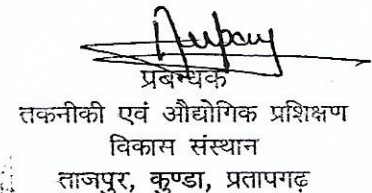 प्रबन्धक
तकनीकी एवं औद्योगिक प्रशिक्षण
विकास संस्थान
ताजपुर, कुण्डा, प्रतापगढ़